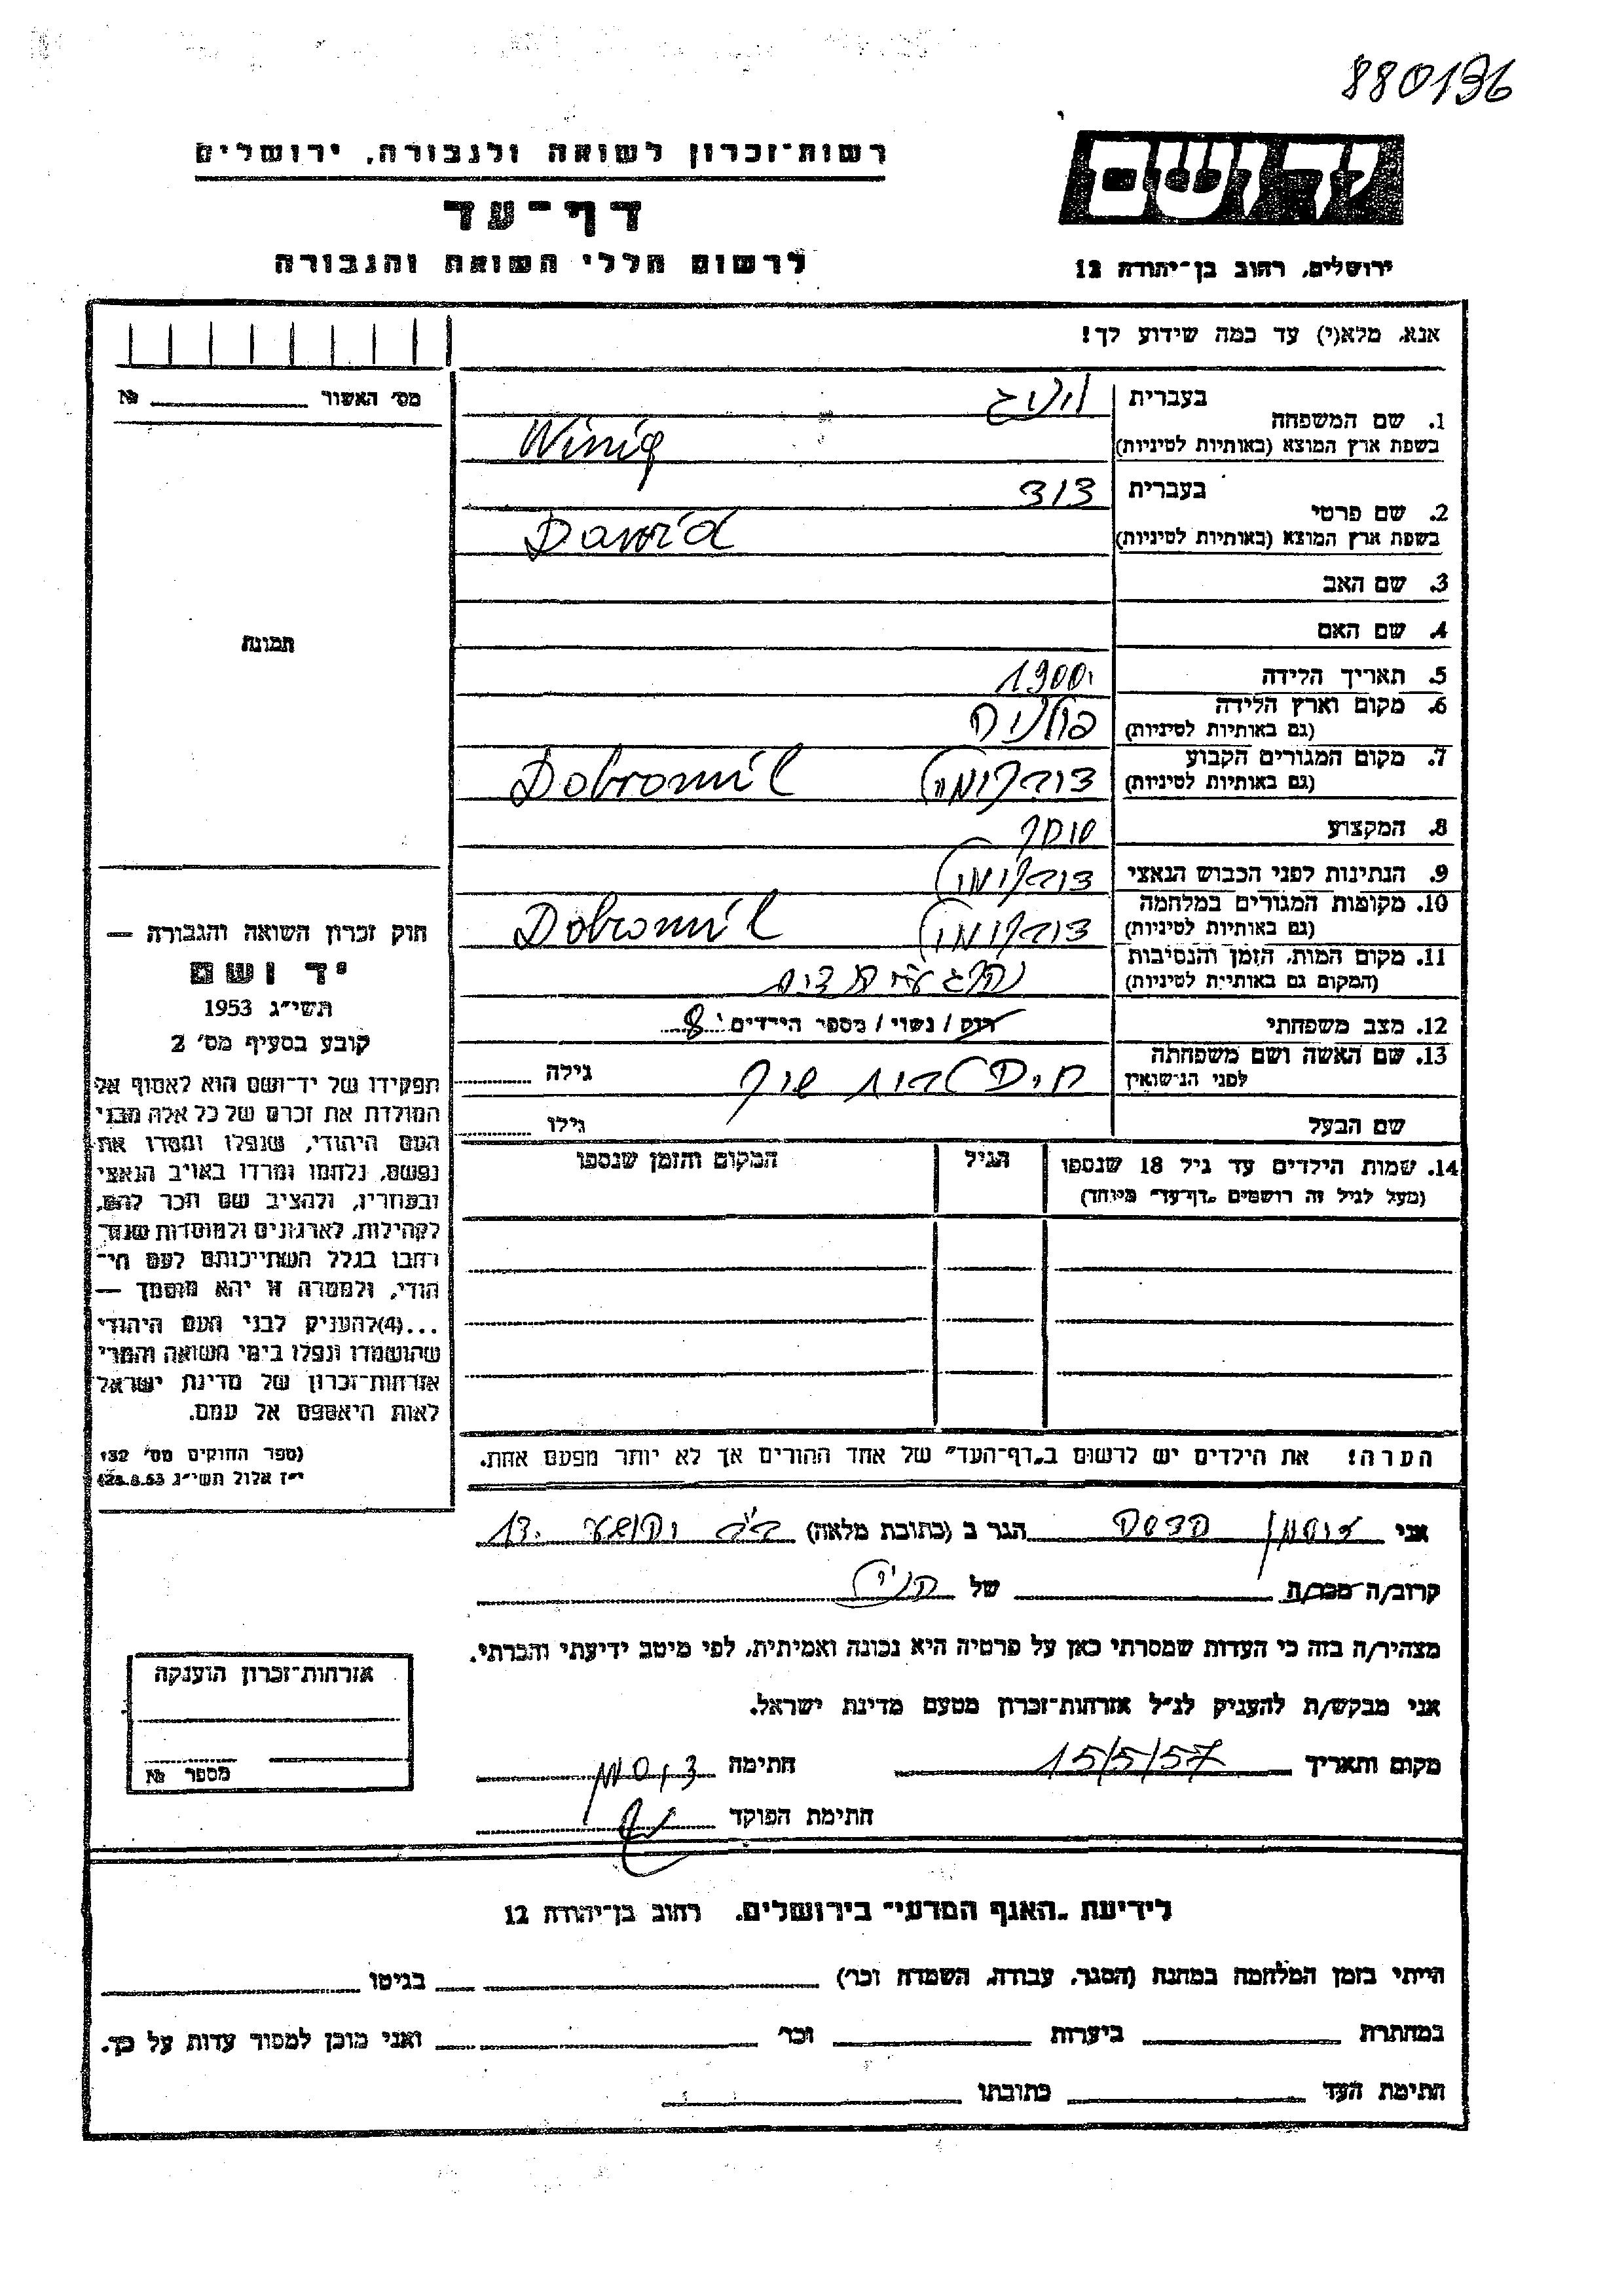 880136
רשות־זכרון לשואה ולגבורה, ירושלים
יד ושם
דף־עד
לרשום חללי השואה והגבורה
ירושלים, רחוב בן־יהודה 12
אנא, מלא(י) עד כמה שידוע לך!
מס׳ האשור № 
1. שם המשפחה בעברית
בשפת ארץ המוצא (באותיות לטיניות) Winig
2. שם פרטי בעברית דוד
בשפת ארץ המוצא (באותיות לטיניות) Dawid
3. שם האב
4. שם האם
תמונה
5. תאריך הלידה 1900
6. מקום וארץ הלידה פולניה
(גם באותיות לטיניות)
7. מקום המגורים הקבוע דוברומיל Dobromil
(גם באותיות לטיניות)
8. המקצוע סוחר
9. הנתינות לפני הכבוש הנאצי דוברומיל
10. מקומות המגורים במלחמה דוברומיל Dobromil
(גם באותיות לטיניות)
11. מקום המות, הזמן והנסיבות
(המקום גם באותיות לטיניות)
12. מצב משפחתי רוק / נשוי / מספר הילדים 8
13. שם האשה ושם משפחתה
לפני הנישואין גילה
שם הבעל גילו
14. שמות הילדים עד גיל 18 שנספו הגיל המקום והזמן שנספו
(מעל לגיל זה רושמים „דף־עד״ מיוחד)
הערה! את הילדים יש לרשום ב„דף־העד״ של אחד ההורים אך לא יותר מפעם אחת.
חוק זכרון השואה והגבורה —
יד ושם
תשי״ג 1953
קובע בסעיף מס׳ 2
תפקידו של יד־ושם הוא לאסוף אל
המולדת את זכרם של כל אלה מבני
העם היהודי, שנפלו ומסרו את
נפשם, נלחמו ומרדו באויב הנאצי
ובעוזריו, ולהציב שם וזכר להם,
לקהילות, לארגונים ולמוסדות שנח־
רבו בגלל השתייכותם לעם הי־
הודי, ולמטרה זו יהא מוסמך —
...(4)להעניק לבני העם היהודי
שהושמדו ונפלו בימי השואה והמרי
אזרחות־זכרון של מדינת ישראל
לאות היאספם אל עמם.
(ספר החוקים מס׳ 132
י״ז אלול תשי״ג 28.8.53)
אני זוסמן הדסה הגר ב (כתובת מלאה) 13
קרוב/ה מכר/ה של
מצהיר/ה בזה כי העדות שמסרתי כאן על פרטיה היא נכונה ואמיתית, לפי מיטב ידיעתי והכרתי.
אני מבקש/ת להעניק לנ״ל אזרחות־זכרון מטעם מדינת ישראל.
מקום ותאריך 15/5/57 חתימה זוסמן
חתימת הפוקד
אזרחות־זכרון הוענקה
מספר №
לידיעת „האגף המדעי״ בירושלים, רחוב בן־יהודה 12
הייתי בזמן המלחמה במחנה (הסגר, עבודה, השמדה וכו׳) בגיטו
במחתרת ביערות וכו׳ ואני מוכן למסור עדות על כך.
חתימת העד כתובתו